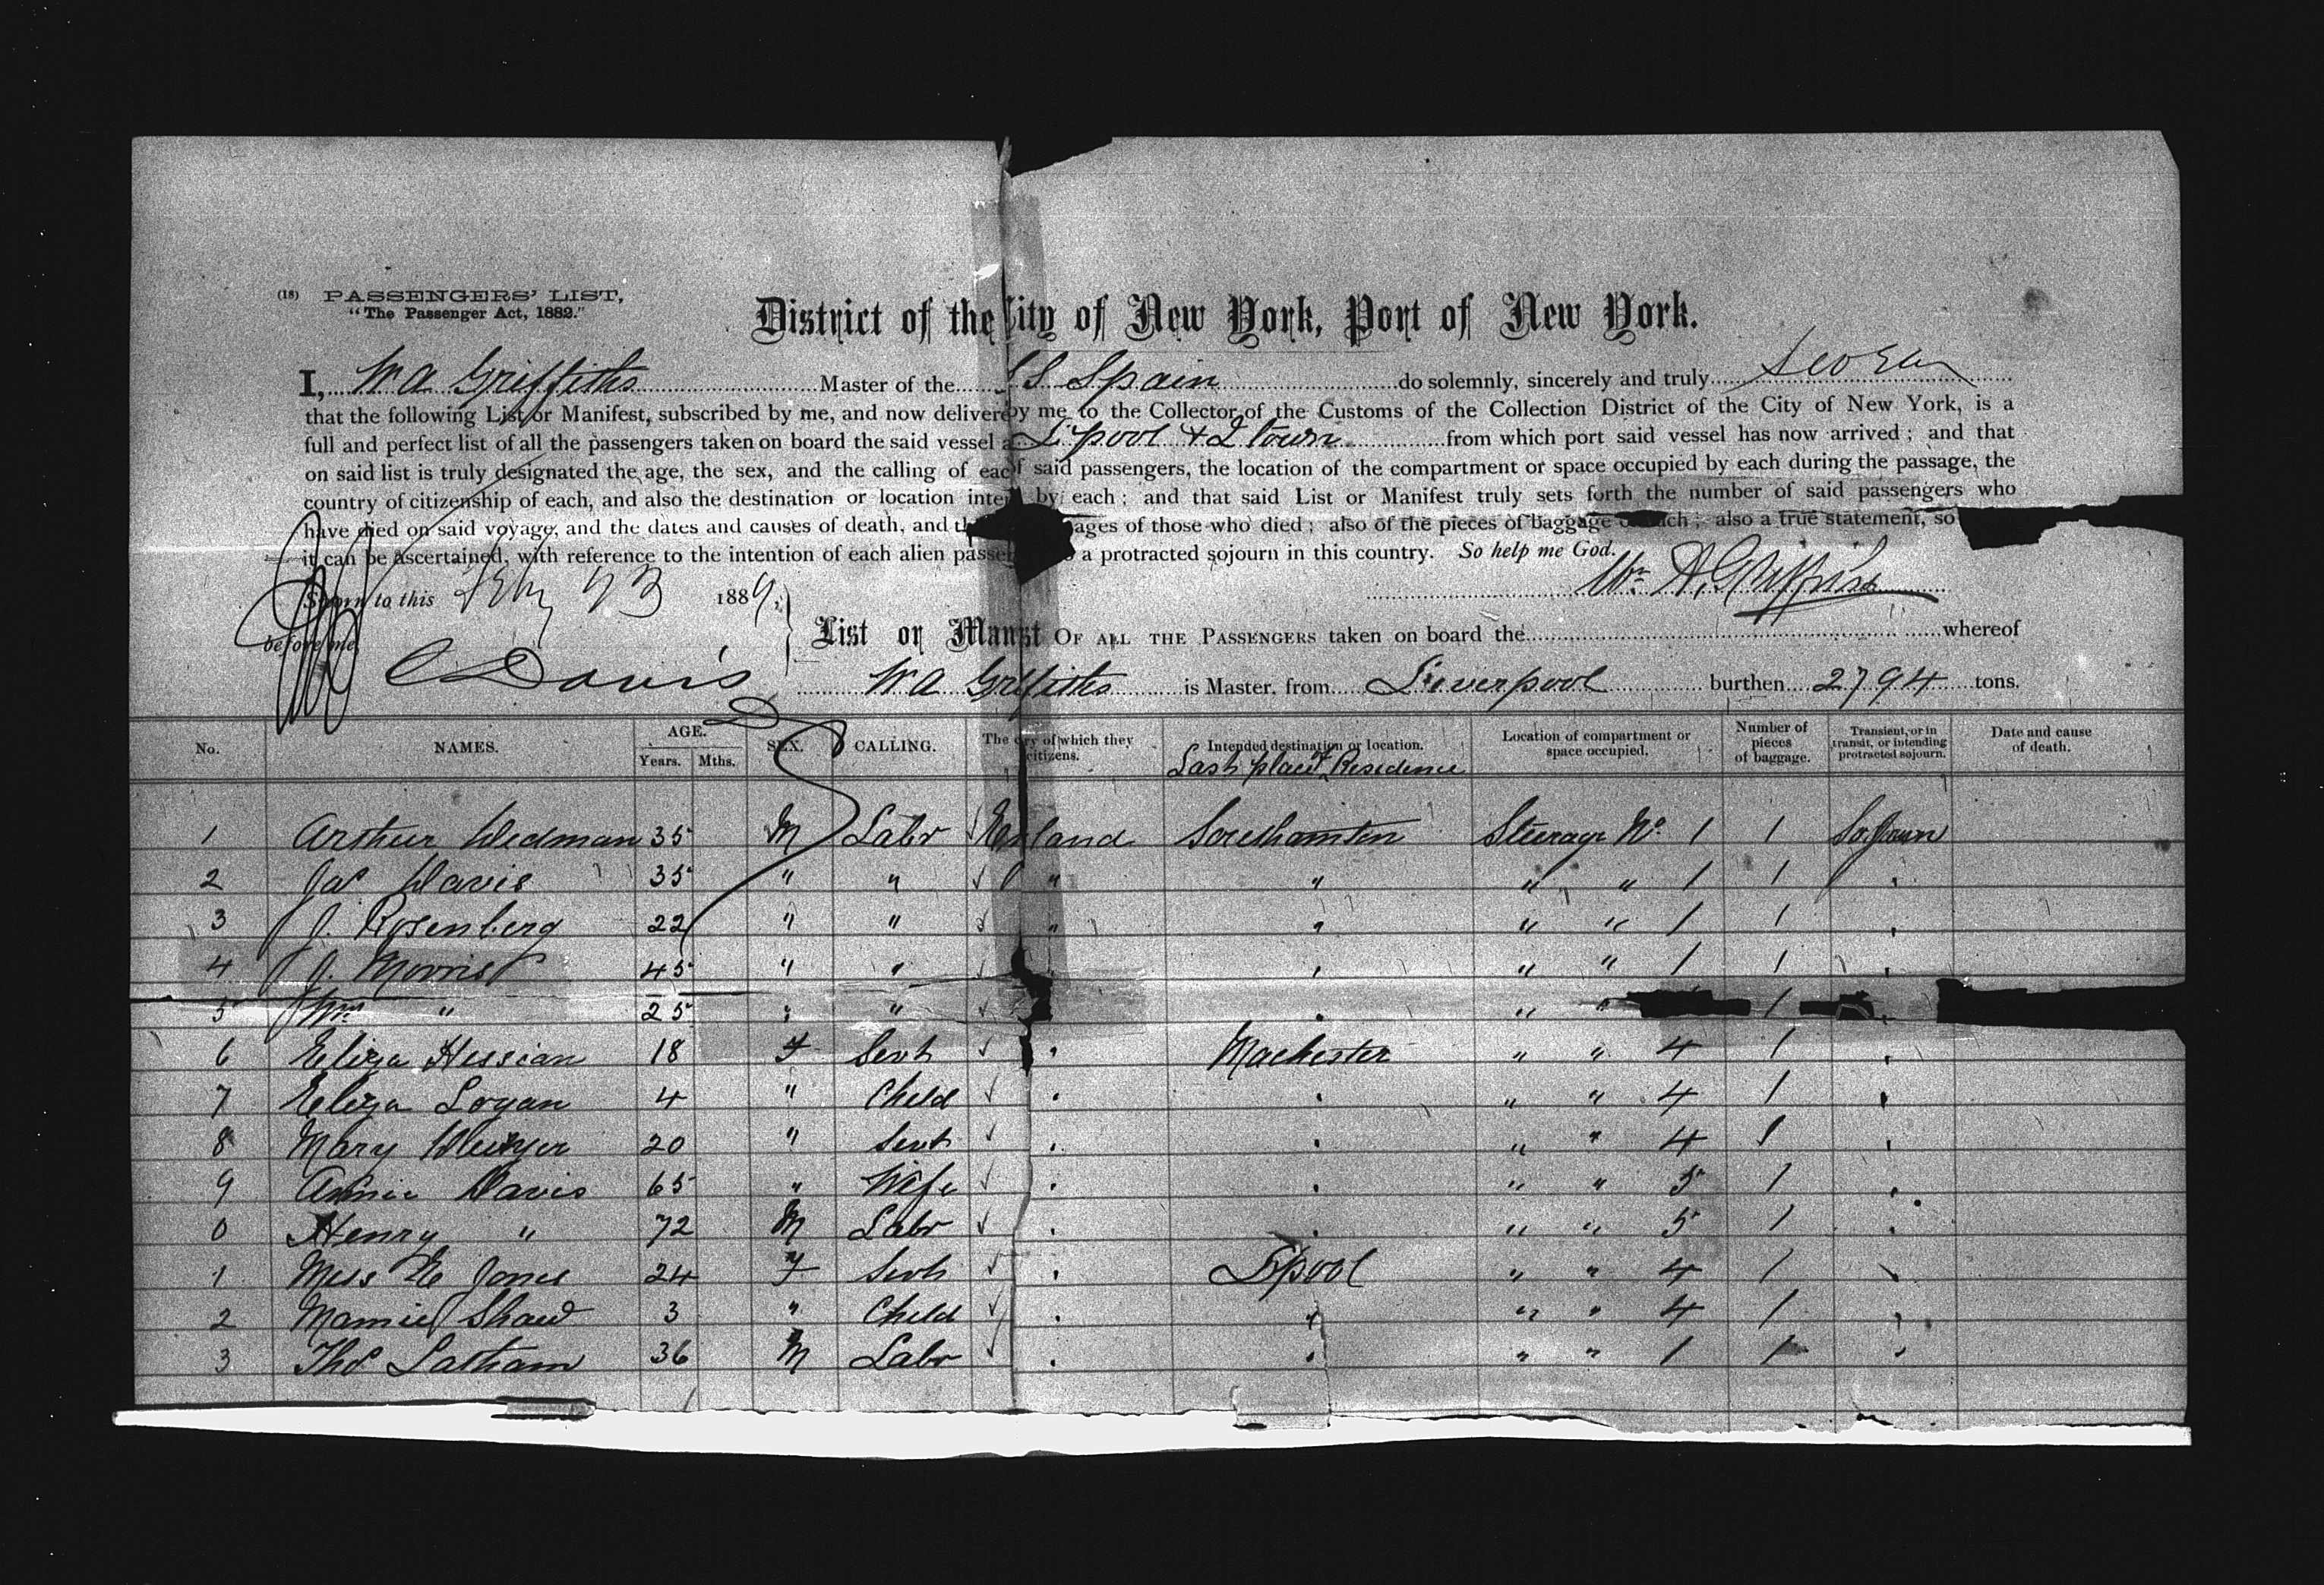 (18) PASSENGERS' LIST,
"The Passenger Act, 1882."
District of the City of New York, Port of New York.
I, W A Griffiths Master of the S S Spain do solemnly, sincerely and truly swear
that the following List or Manifest, subscribed by me, and now delivere by me to the Collector of the Customs of the Collection District of the City of New York, is a
full and perfect list of all the passengers taken on board the said vessel a L'pool & Q town from which port said vessel has now arrived; and that
on said list is truly designated the age, the sex, and the calling of eac of said passengers, the location of the compartment or space occupied by each during the passage, the
country of citizenship of each, and also the destination or location inten by each; and that said List or Manifest truly sets forth the number of said passengers who
have died on said voyage, and the dates and causes of death, and th ages of those who died; also of the pieces of baggage of each; also a true statement, so
it can be ascertained, with reference to the intention of each alien passe a protracted sojourn in this country. So help me God.
Sworn to this Feby 23 1889, Wm A. Griffiths
before me, C Davis
List or Manst OF ALL THE PASSENGERS taken on board the whereof
W A Griffiths is Master, from Liverpool burthen 2794 tons.
No. NAMES. AGE. Years. Mths. SEX. CALLING. The ry of which they citizens. Intended destination or location. Last place of Residence Location of compartment or space occupied. Number of pieces of baggage. Transient, or in transit, or intending protracted sojourn. Date and cause of death.
1 Arthur Dedman 35 M Labr England Southamton Steerage No. 1 1 Sojourn
2 Jas Davis 35 " " " " " " 1 1 "
3 J. Rosenberg 22 " " " " " " 1 1 "
4 J. Morris 45 " " " " " " 1 1 "
5 Wm " 25 " " " " " 1 "
6 Eliza Hessian 18 F Servt " Machester " " 4 1 "
7 Eliza Logan 4 " Child " " " " 4 1 "
8 Mary 20 " Servt " " " " 4 1 "
9 Annie Davis 65 " Wife " " " " 5 1 "
0 Henry " 72 M Labr " " " " 5 1 "
1 Miss E Jones 24 F Servt " L'pool " " 4 1 "
2 Mamie Shaw 3 " Child " " " " 4 1 "
3 Thos Latham 36 M Labr " " " " 1 1 "